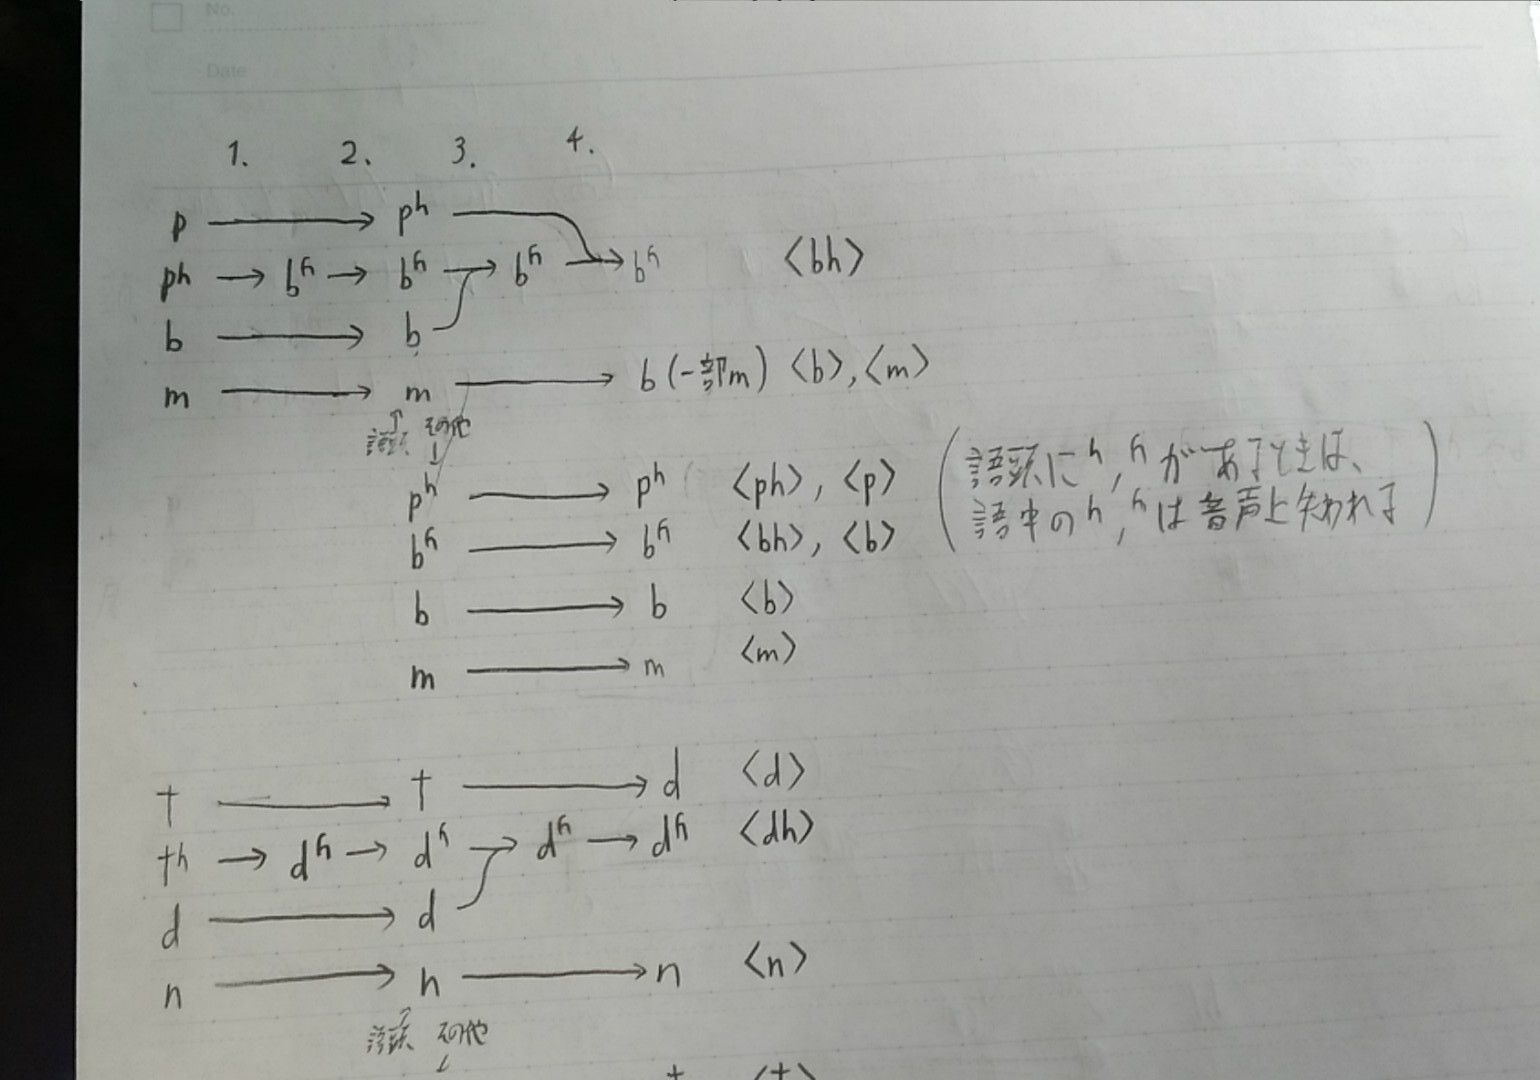 No.
Date
1. 2. 3. 4.
p → pʰ
ph → bʱ → bʱ → bʱ → bʱ 〈bh〉
b → b
m → m → b (一部m) 〈b〉,〈m〉
↑ 語頭 その他 ↓
pʰ → pʰ 〈ph〉, 〈p〉
bʱ → bʱ 〈bh〉, 〈b〉
(語頭にʰ, ʱがあるときは、
語中のʰ, ʱは音声上失われる)
b → b 〈b〉
m → m 〈m〉
t → t → d 〈d〉
th → dʱ → dʱ → dʱ → dʱ 〈dh〉
d → d
n → n → n 〈n〉
↑ 語頭 その他 ↓
t 〈t〉